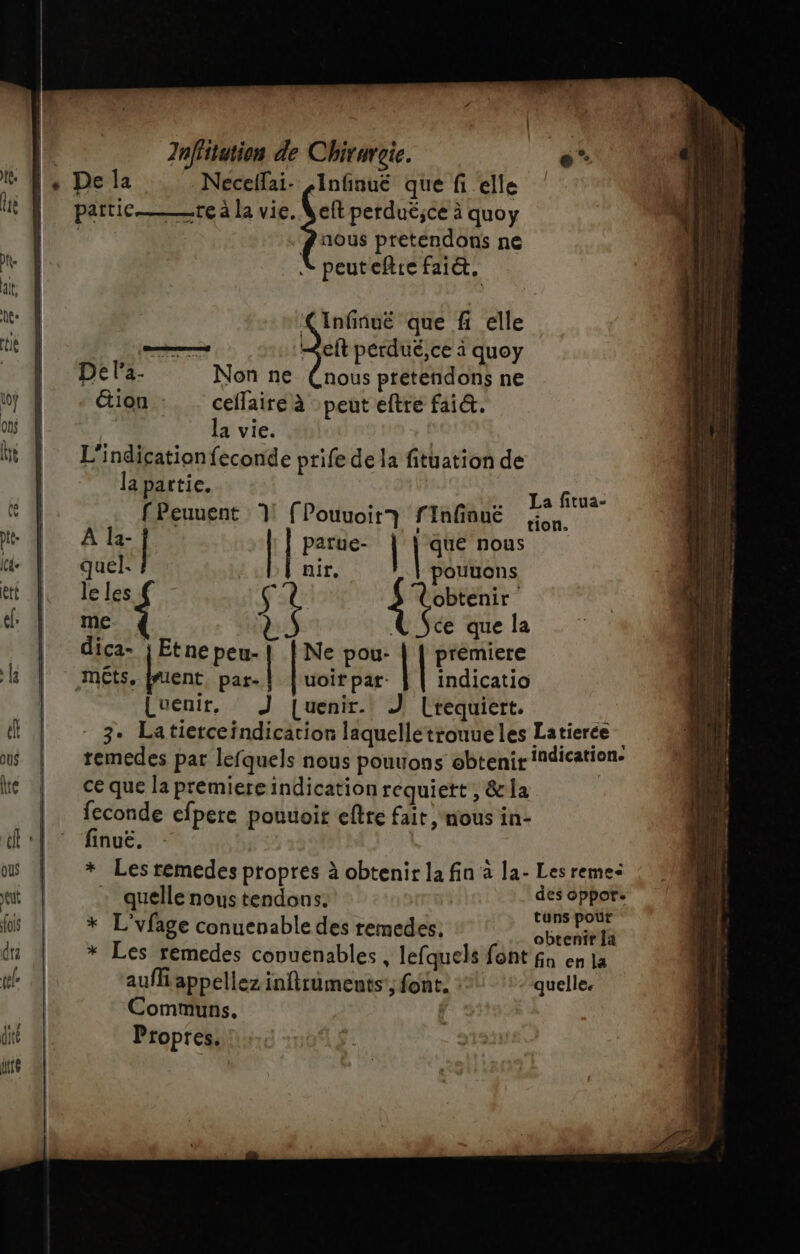 Inſtitution de Chirurgie.
De la Neceſſai- Inſinuë que ſi elle
partie re à la vie. eſt perduë, ce à quoy
nous pretendons ne
peut eſtre faict.
Inſinuë que ſi elle
eſt perduë, ce à quoy
De l'a- Non ne nous pretendons ne
ction ceſſaire à peut eſtre faict.
la vie.
L'indication ſeconde priſe de la ſituation de
la partie.
La ſitua-
tion.
Peuuent Pouuoir Inſinuë
A la- parue- que nous
quel- nir, pouuons
le les obtenir
me ce que la
dica- Et ne peu- Ne pou- premiere
méts. uent par- uoir par- indicatio
uenir, uenir. requiert.
3. La tierce indication laquelle trouue les
La tierce
indication.
remedes par leſquels nous pouuons obtenir
ce que la premiere indication requiert, & la
ſeconde eſpere pouuoir eſtre fait, nous in-
ſinuë.
* Les remedes propres à obtenir la fin à la-
quelle nous tendons.
* L'vſage conuenable des remedes.
* Les remedes conuenables, leſquels ſont
auſſi appellez inſtruments, ſont,
Les reme-
des oppor-
tuns pour
obtenir la
fin en la
quelle.
Communs.
Propres.